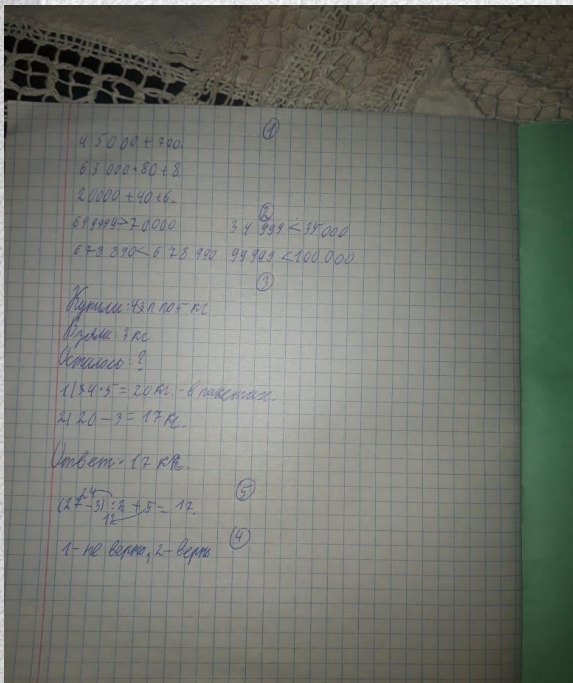 ①
45000 + 700.
63 000 + 80 + 8
20000 + 40 + 6.
②
699999 > 70000 34 999 < 35000
678.890 < 678 990 99999 < 100.000
③
Купили: 4 п по 5 кг
Взяли: 3 кг
Осталось: ?
·5 = 20 кг. - в пакетах.
2) 20 - 3 = 17 кг.
Ответ: 17 кг.
⑤
24
(27 - 3) : 2 + 5 = 17.
12
④
1 - не верно, 2 - верно